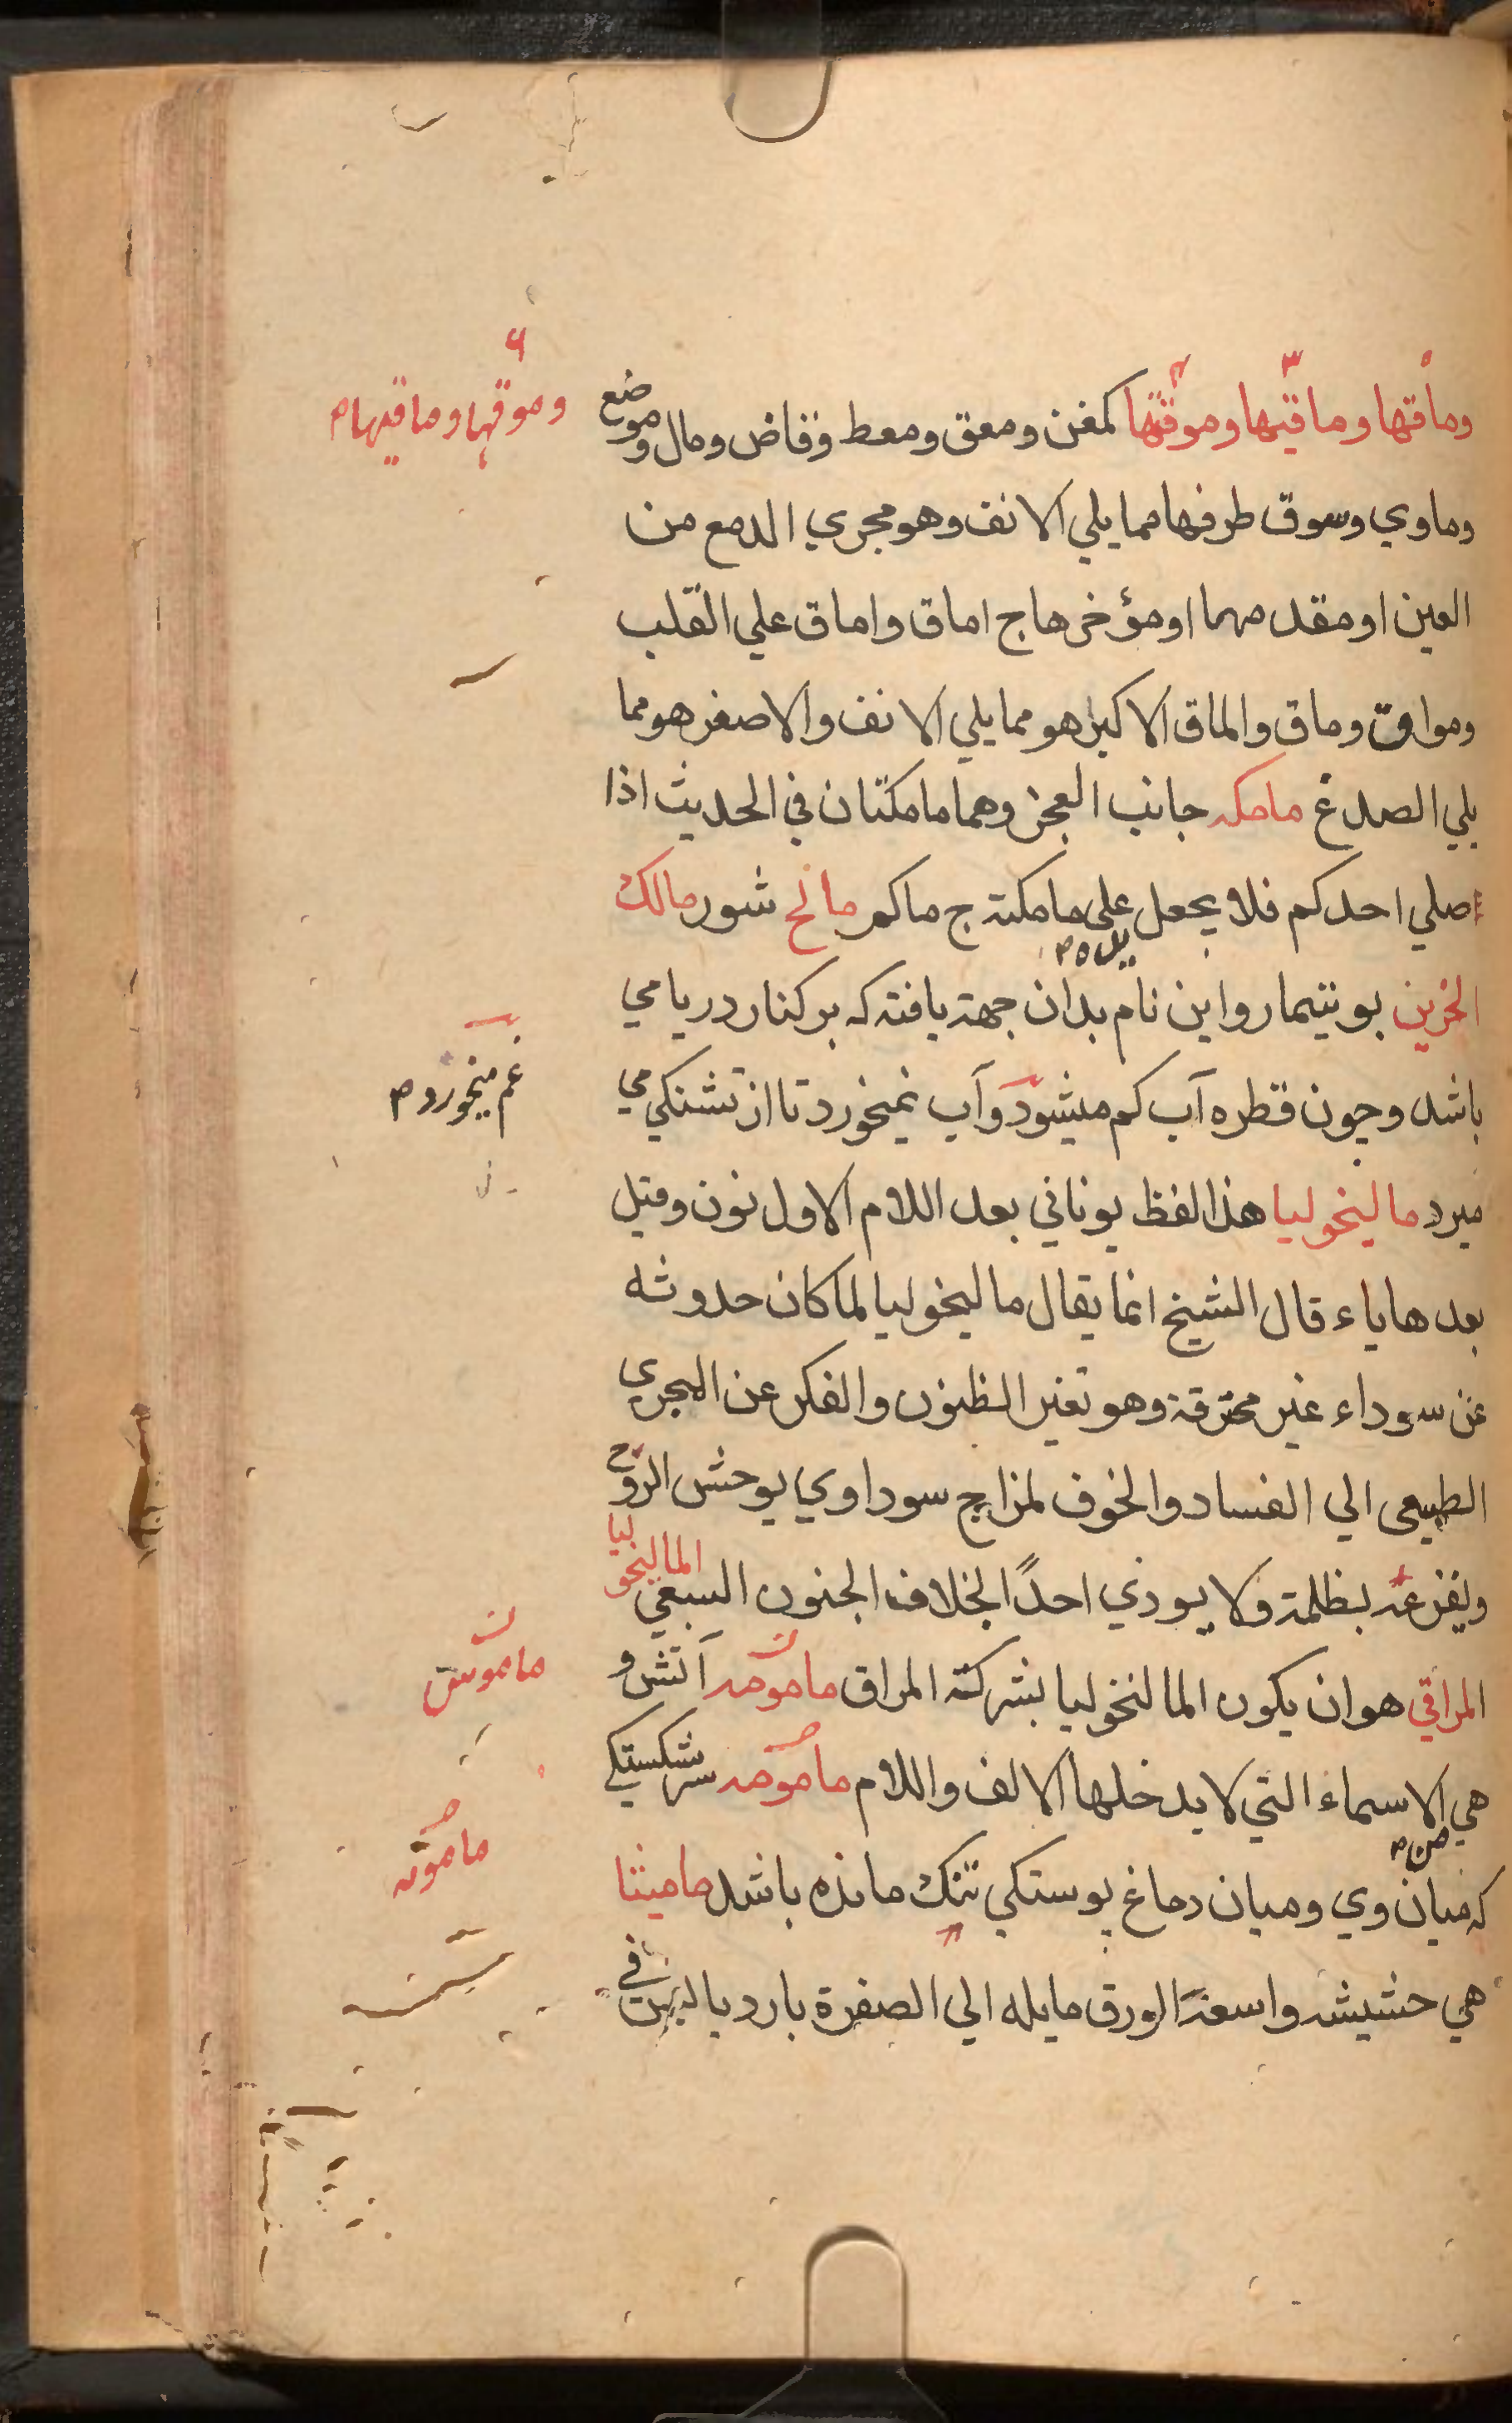 وماقتها وماقيها وموقتها كمغن ومعق ومعط وفاض ومال وموضع
وموقها وماقيهام
وماوي وسوق طرفها مما يلي الانف وهو مجري الدمع من
العين او مقدمها او مؤخرها ج اماق واماق علي القلب
ومواق وماق والماق الاكبر هو مما يلي الانف والاصغر هو مما
يلي الصدغ مامكه جانب العجز وهما مامكتان في الحديث اذا
صلي احدكم فلا يجعل على مامكته ج ماكم مالح شور مالك
الحزين بوتيمار واين نام بدان جهة يافته كه بر كنار دريا مي
باشد وجون قطره آب كم ميشود وآب نميخورد تا از تشنكي مي
غم ميخورد م
ميرد ماليخوليا هذا لفظ يوناني بعد اللام الاول نون وقيل
بعدها ياء قال الشيخ انما يقال ماليخوليا لما كان حدوثه
عن سوداء غير محترقة وهو تغير الظنون والفكر عن المجري
الطبيعي الي الفساد والخوف لمزاج سوداوي يوحش الروح
ويفزعه بظلمته ولا يوذي احدًا بخلاف الجنون السبعي الماليخوليا
المراقي هو ان يكون المالنخوليا بشركة المراق مامومه آتش و
ماموس
هي الاسماء التي لا يدخلها الالف واللام مامومه سرشكستكي
مامونه
كه ميان وي وميان دماغ پوستكي تنك مانده باشد ماميثا
هي حشيشه واسعة الورق مايله الي الصفرة بارد يابس في